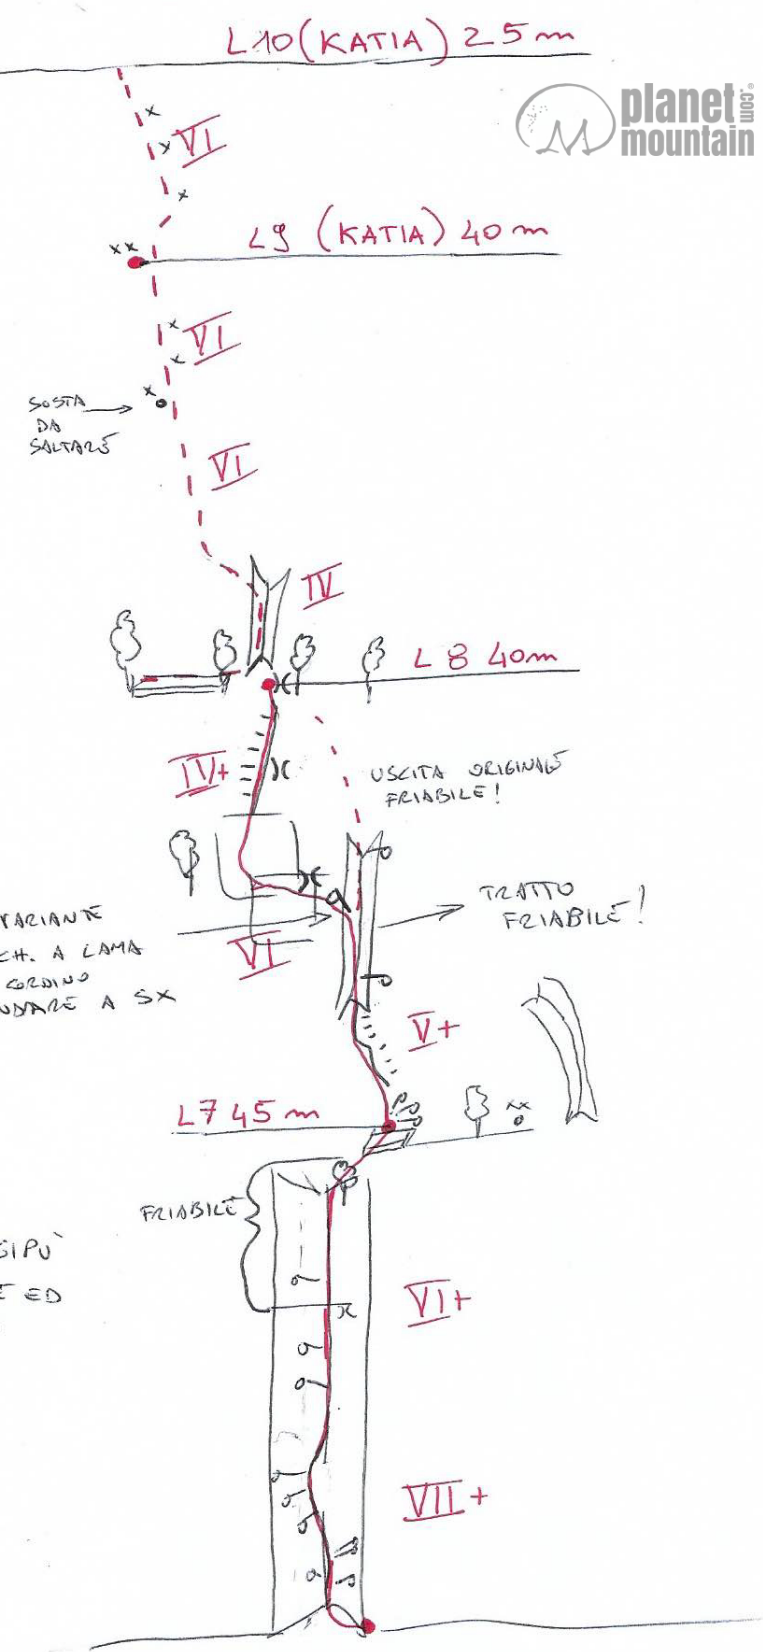 L10 (KATIA) 25m
planet
mountain
.com
VI
L9 (KATIA) 40m
VI
SOSTA
DA
SALTARE
VI
IV
L 8 40m
IV+
USCITA ORIGINALE
FRIABILE!
TRATTO
FRIABILE!
VARIANTE
CH. A LAMA
CORDINO
NDARE A SX
VI
V+
L7 45m
FRIABILE
SIPU'
E ED
VI+
VII+